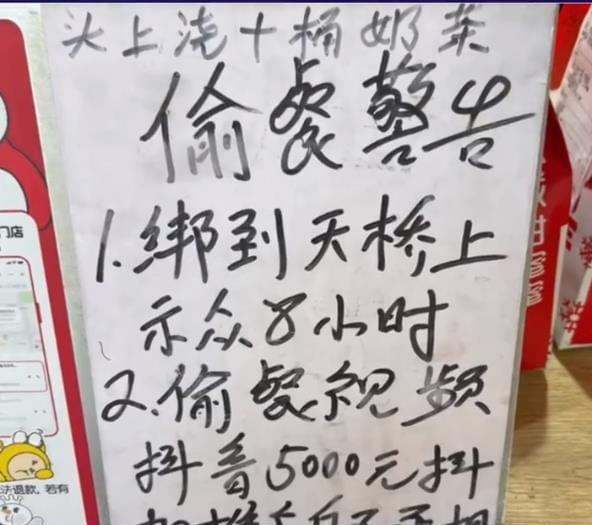 头上浇十桶奶茶
偷餐警告
1.绑到天桥上
示众8小时
2.偷餐视频
抖音5000元抖
门店
法退款,若有